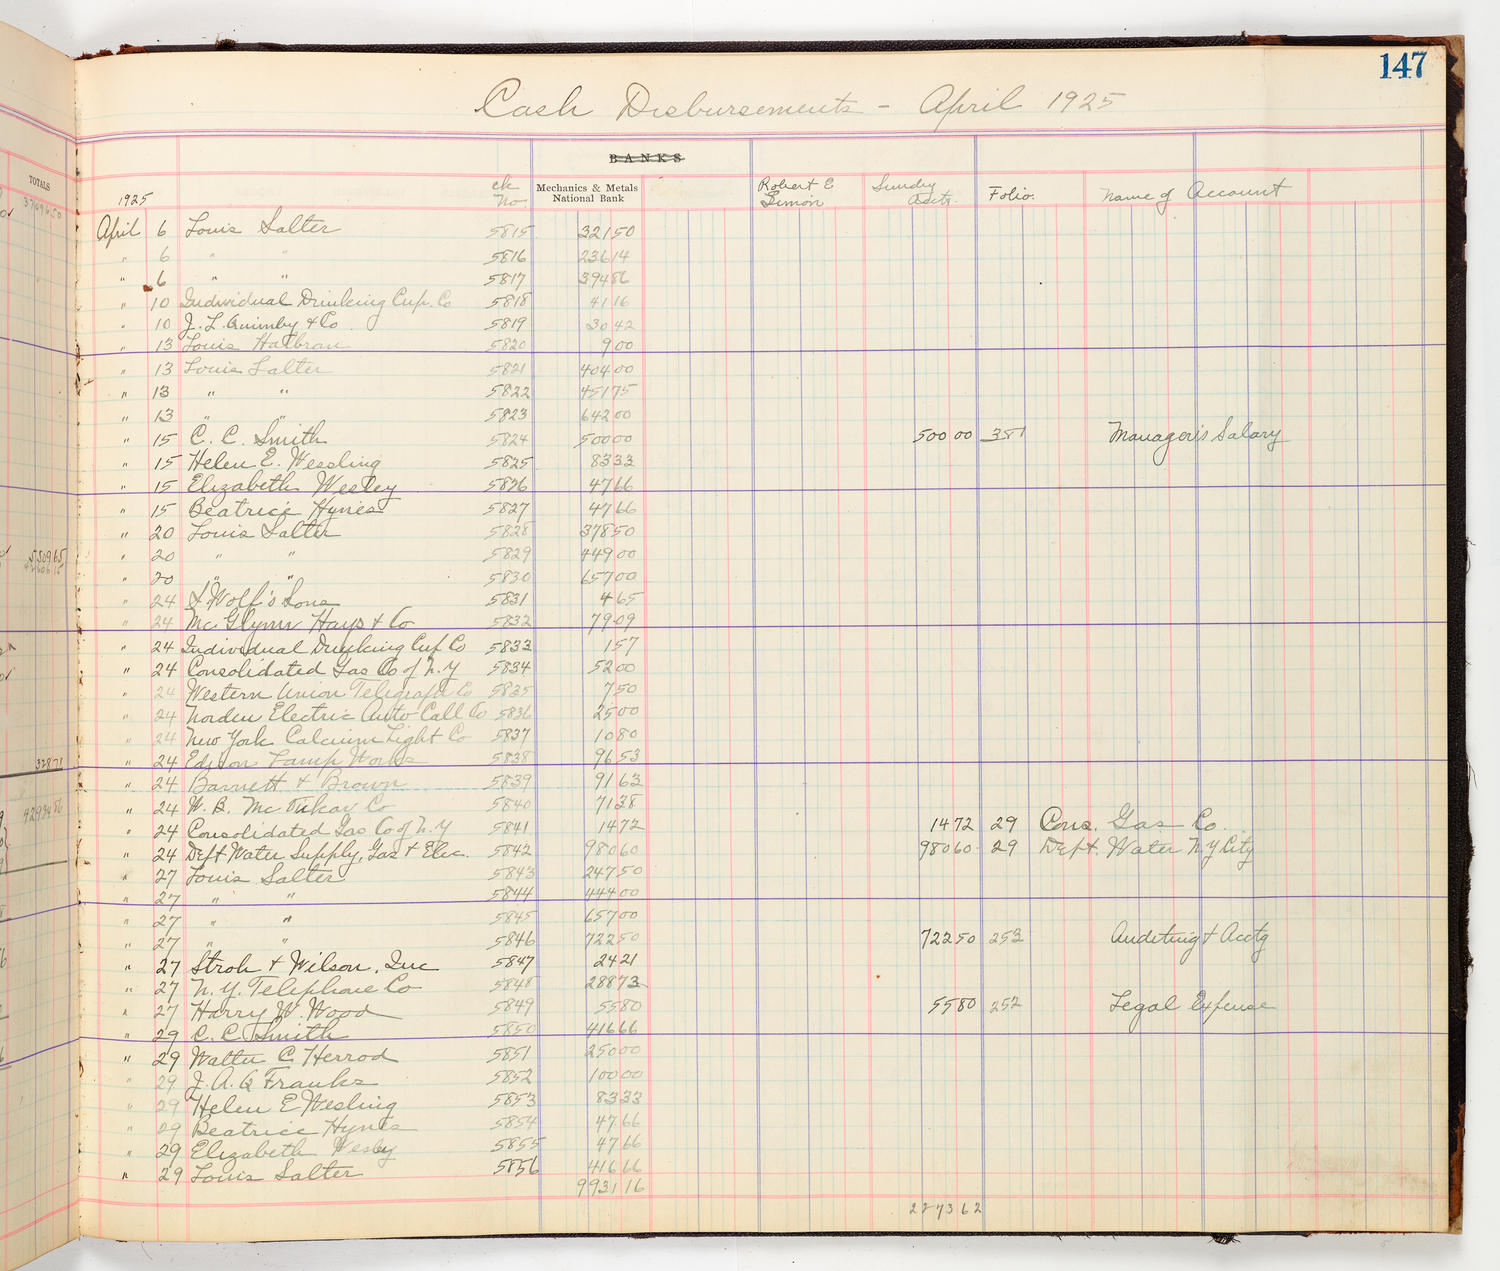 147
Cash Disbursements - April 1925
BANKS
TOTALS
1925 ck No Mechanics & Metals National Bank Robert E Simon Sundry Accts. Folio. Name of Account
April 6 Louis Salter 5815 321 50
" 6 " " 5816 236 14
" 6 " " 5817 394 86
" 10 Individual Drinking Cup. Co 5818 41 16
" 10 J. L. Quimby & Co. 5819 30 42
" 13 Louis Halbran 5820 9 00
" 13 Louis Salter 5821 404 00
" 13 " " 5822 451 75
" 13 " " 5823 642 00
" 15 C. C. Smith 5824 500 00 500 00 381 Manager's Salary
" 15 Helen E. Wessling 5825 83 33
" 15 Elizabeth Wesley 5826 47 66
" 15 Beatrice Hynes 5827 47 66
" 20 Louis Salter 5828 378 50
" 20 " " 5829 449 00
" 20 " " 5830 657 00
" 24 S Wolf's Sons 5831 4 65
" 24 Mc Glynn Hays & Co 5832 79 09
" 24 Individual Drinking Cup Co 5833 1 57
" 24 Consolidated Gas Co of N.Y 5834 52 00
" 24 Western Union Telegraph Co 5835 7 50
" 24 Norden Electric Auto Call Co 5836 25 00
" 24 New York Calcium Light Co 5837 10 80
" 24 Edison Lamp Works 5838 96 53
" 24 Barrett & Brown 5839 91 63
" 24 W. B. Mc Co 5840 71 38
" 24 Consolidated Gas Co of N.Y 5841 14 72 14 72 29 Cons. Gas Co.
" 24 Dept. Water Supply, Gas & Elec. 5842 980 60 980 60 29 Dept. Water N Y City
" 27 Louis Salter 5843 247 50
" 27 " " 5844 444 00
" 27 " " 5845 657 00
" 27 " " 5846 722 50 722 50 253 Auditing & Acctg
" 27 Stroh & Wilson, Inc 5847 24 21
" 27 N. Y. Telephone Co 5848 288 73
" 27 Harry W. Wood 5849 55 80 55 80 252 Legal Expense
" 29 C. C. Smith 5850 416 66
" 29 Walter C. Herrod 5851 250 00
" 29 J. A. Q Franks 5852 100 00
" 29 Helen E Wesling 5853 83 33
" 29 Beatrice Hynes 5854 47 66
" 29 Elizabeth Wesley 5855 47 66
" 29 Louis Salter 5856 416 66
9931 16
2273 62